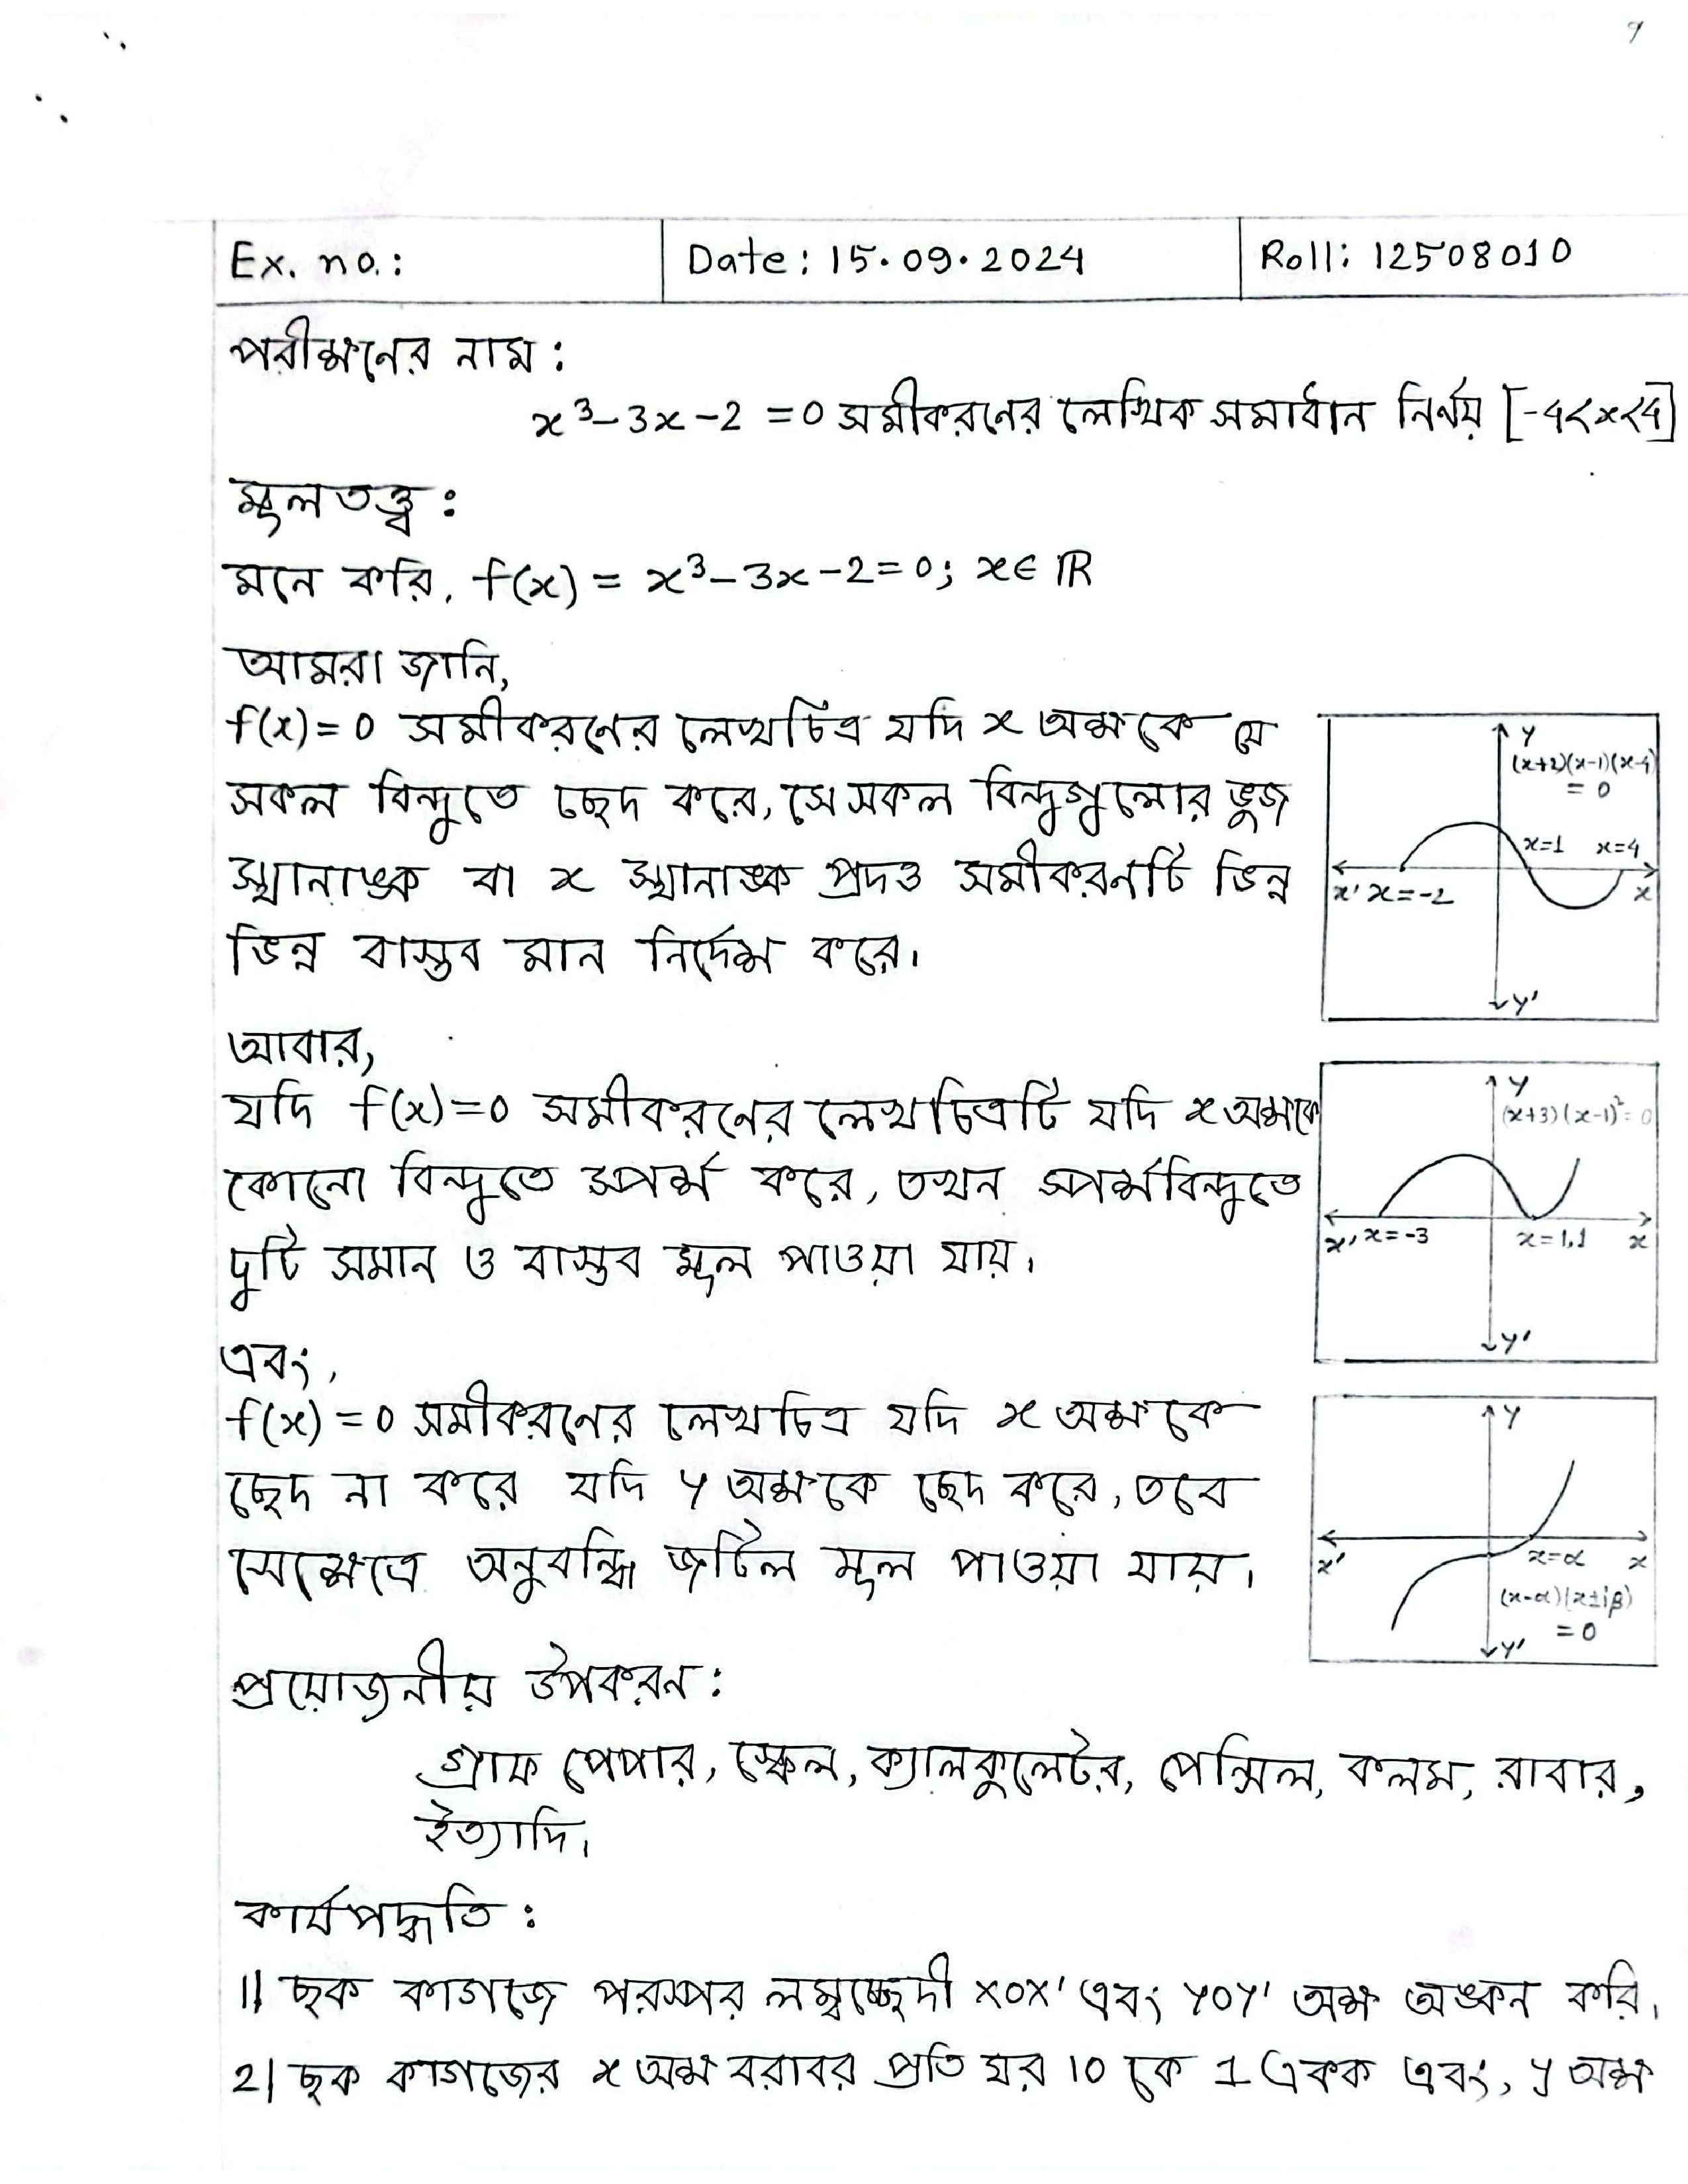 Ex. no.:
Date: 15.09.2024
Roll: 12508010
পরীক্ষণের নাম:
x³-3x-2=0 সমীকরণের লেখিক সমাধান নির্ণয় [-4<x<4]
মূলতত্ত্ব:
মনে করি, f(x) = x³-3x-2=0; x∈ℝ
আমরা জানি,
f(x)=0 সমীকরণের লেখচিত্র যদি x অক্ষকে যে
সকল বিন্দুতে ছেদ করে, সে সকল বিন্দুগুলোর ভুজ
স্থানাঙ্ক বা x স্থানাঙ্ক প্রদত্ত সমীকরণটি ভিন্ন
ভিন্ন বাস্তব মান নির্দেশ করে।
y
(x+2)(x-1)(x-4)
= 0
x=1 x=4
x' x=-2 x
y'
আবার,
যদি f(x)=0 সমীকরণের লেখচিত্রটি যদি x অক্ষকে
কোনো বিন্দুতে স্পর্শ করে, তখন স্পর্শবিন্দুতে
দুটি সমান ও বাস্তব মূল পাওয়া যায়।
y
(x+3)(x-1)²=0
x' x=-3 x=1,1 x
y'
এবং,
f(x)=0 সমীকরণের লেখচিত্র যদি x অক্ষকে
ছেদ না করে যদি y অক্ষকে ছেদ করে, তবে
সেক্ষেত্রে অনুবন্ধি জটিল মূল পাওয়া যায়।
y
x' x=α x
(x-α)(x±iβ)
= 0
y'
প্রয়োজনীয় উপকরন:
গ্রাফ পেপার, স্কেল, ক্যালকুলেটর, পেন্সিল, কলম, রাবার,
ইত্যাদি।
কার্যপদ্ধতি:
1| ছক কাগজে পরস্পর লম্বচ্ছেদী XOX' এবং YOY' অক্ষ অঙ্কন করি।
2| ছক কাগজের x অক্ষ বরাবর প্রতি ঘর 10 কে 1 একক এবং, y অক্ষ